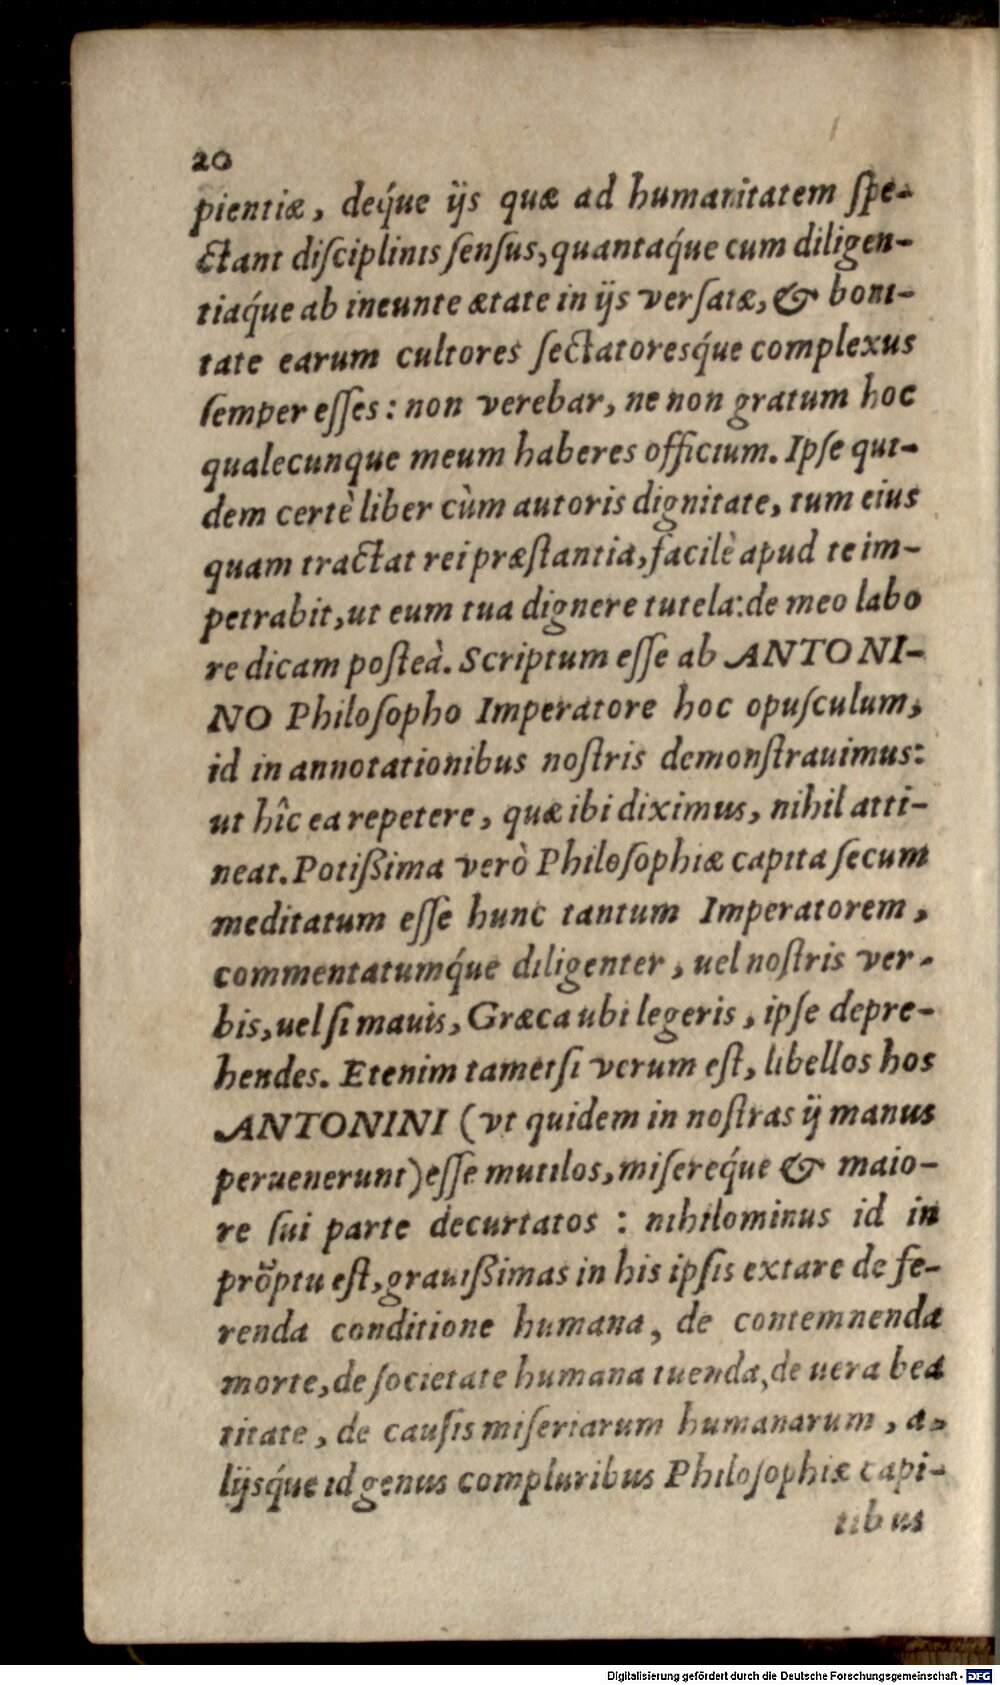 20
pientiæ, deq́ue ijs quæ ad humanitatem ſpe-
ctant diſciplinis ſenſus, quantaq́ue cum diligen-
tiaq́ue ab ineunte ætate in ijs verſatæ, & boni-
tate earum cultores ſectatoresq́ue complexus
ſemper eſſes: non verebar, ne non gratum hoc
qualecunque meum haberes officium. Ipſe qui-
dem certè liber cùm autoris dignitate, tum eius
quam tractat rei præſtantia, facilè apud te im-
petrabit, ut eum tua dignere tutela: de meo labo
re dicam poſteà. Scriptum eſſe ab ANTONI-
NO Philoſopho Imperatore hoc opuſculum,
id in annotationibus noſtris demonſtrauimus:
ut hîc ea repetere, quæ ibi diximus, nihil atti-
neat. Potißima verò Philoſophiæ capita ſecum
meditatum eſſe hunc tantum Imperatorem,
commentatumq́ue diligenter, uel noſtris ver-
bis, uel ſi mauis, Græca ubi legeris, ipſe depre-
hendes. Etenim tametſi verum eſt, libellos hos
ANTONINI (vt quidem in noſtras ij manus
peruenerunt) eſſe mutilos, miſereq́ue & maio-
re ſui parte decurtatos: nihilominus id in
prõptu eſt, grauißimas in his ipſis extare de fe-
renda conditione humana, de contemnenda
morte, de ſocietate humana tuenda, de uera bea
titate, de cauſis miſeriarum humanarum, a-
lijsq́ue id genus compluribus Philoſophiæ capi-
tibus
Digitalisierung gefördert durch die Deutsche Forschungsgemeinschaft - DFG